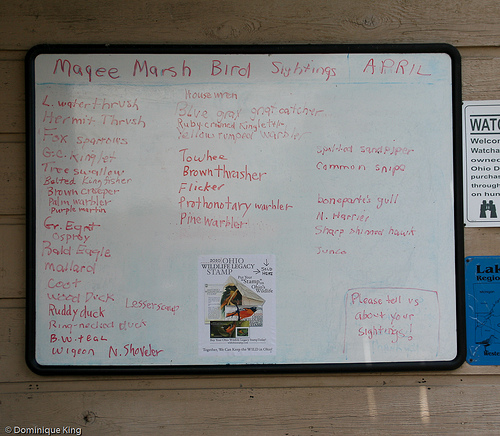 Magee Marsh Bird Sightings APRIL
L. waterthrush
Hermit Thrush
Fox sparrows
G.C. Kinglet
Tree swallow
Belted Kingfisher
Brown creeper
Palm warbler
Purple martin
Gr. Egret
Osprey
Bald Eagle
Mallard
Coot
Wood Duck
Lesser scaup
Ruddy duck
Ring-necked duck
B.W. teal
Wigeon
N. Shoveler
House wren
Blue gray gnat catcher
Ruby crowned Kinglet
Yellow rumped warbler
Towhee
Brown thrasher
Flicker
Prothonotary warbler
Pine warbler
spotted sandpiper
Common snipe
bonaparte's gull
N. Harrier
Sharp shinned hawk
Junco
Please tell us
about your
sightings!
OHIO
WILDLIFE LEGACY
STAMP
SOLD
HERE
Put Your
"Stamp"
on
Ohio's
Wildlife
Together, We Can Keep the WILD in Ohio!
WATC
Welcor
Watcha
owned
Ohio D
purchas
through
on hun
Lak
Regio
© Dominique King